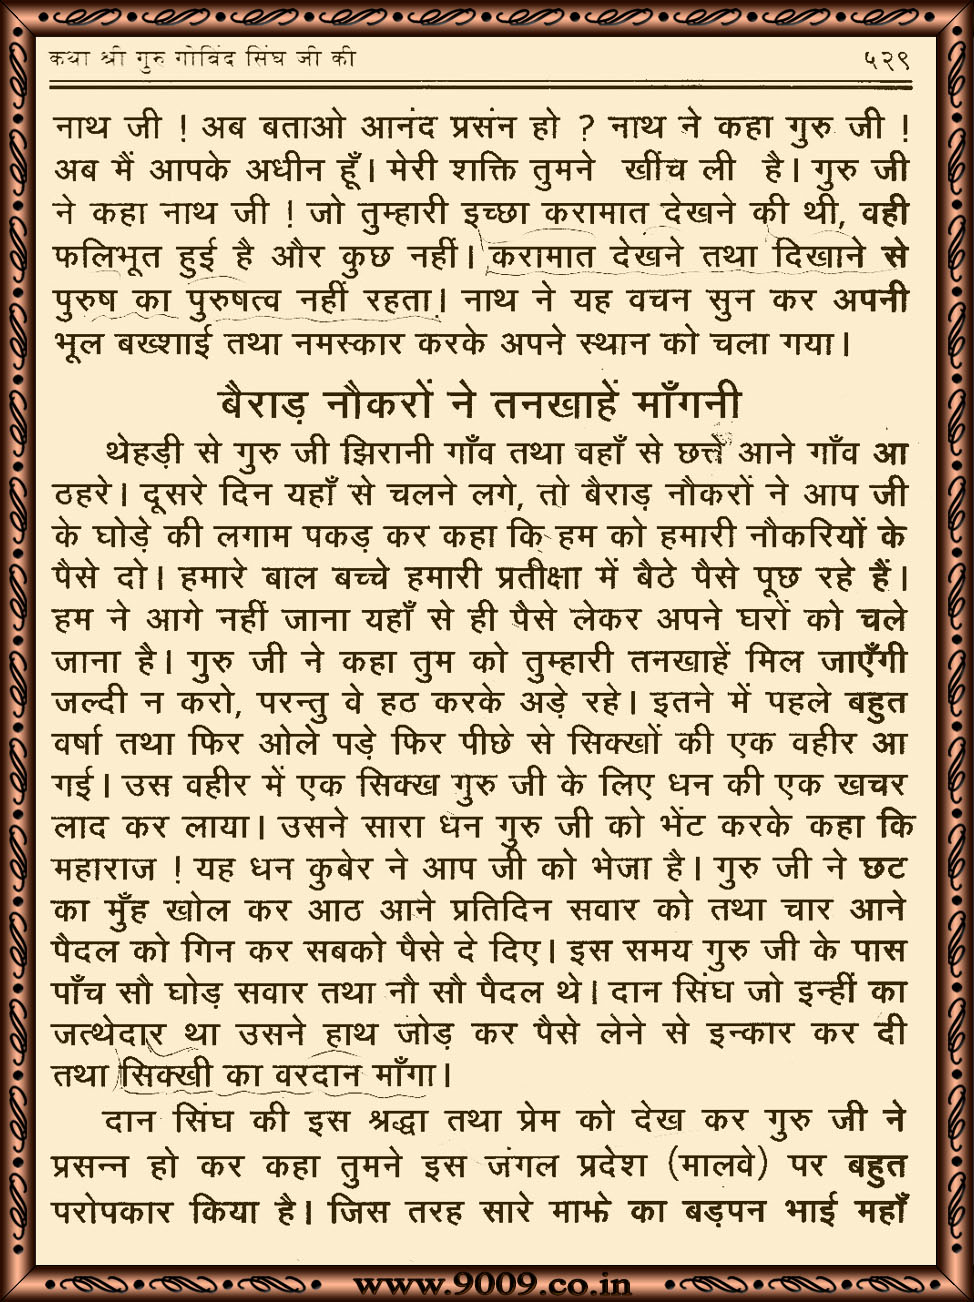 कथा श्री गुरु गोबिंद सिंघ जी की ५२९
नाथ जी ! अब बताओ आनंद प्रसंन हो ? नाथ ने कहा गुरु जी !
अब मैं आपके अधीन हूँ। मेरी शक्ति तुमने खींच ली है। गुरु जी
ने कहा नाथ जी ! जो तुम्हारी इच्छा करामात देखने की थी, वही
फलिभूत हुई है और कुछ नहीं। करामात देखने तथा दिखाने से
पुरुष का पुरुषत्व नहीं रहता। नाथ ने यह वचन सुन कर अपनी
भूल बख्शाई तथा नमस्कार करके अपने स्थान को चला गया।
बैराड़ नौकरों ने तनखाहें माँगनी
थेहड़ी से गुरु जी झिरानी गाँव तथा वहाँ से छत्ते आने गाँव आ
ठहरे। दूसरे दिन यहाँ से चलने लगे, तो बैराड़ नौकरों ने आप जी
के घोड़े की लगाम पकड़ कर कहा कि हम को हमारी नौकरियों के
पैसे दो। हमारे बाल बच्चे हमारी प्रतीक्षा में बैठे पैसे पूछ रहे हैं।
हम ने आगे नहीं जाना यहाँ से ही पैसे लेकर अपने घरों को चले
जाना है। गुरु जी ने कहा तुम को तुम्हारी तनखाहें मिल जाएँगी
जल्दी न करो, परन्तु वे हठ करके अड़े रहे। इतने में पहले बहुत
वर्षा तथा फिर ओले पड़े फिर पीछे से सिक्खों की एक वहीर आ
गई। उस वहीर में एक सिक्ख गुरु जी के लिए धन की एक खचर
लाद कर लाया। उसने सारा धन गुरु जी को भेंट करके कहा कि
महाराज ! यह धन कुबेर ने आप जी को भेजा है। गुरु जी ने छट
का मुँह खोल कर आठ आने प्रतिदिन सवार को तथा चार आने
पैदल को गिन कर सबको पैसे दे दिए। इस समय गुरु जी के पास
पाँच सौ घोड़ सवार तथा नौ सौ पैदल थे। दान सिंघ जो इन्हीं का
जत्थेदार था उसने हाथ जोड़ कर पैसे लेने से इन्कार कर दी
तथा सिक्खी का वरदान माँगा।
दान सिंघ की इस श्रद्धा तथा प्रेम को देख कर गुरु जी ने
प्रसन्न हो कर कहा तुमने इस जंगल प्रदेश (मालवे) पर बहुत
परोपकार किया है। जिस तरह सारे माझे का बड़पन भाई महाँ
www.9009.co.in